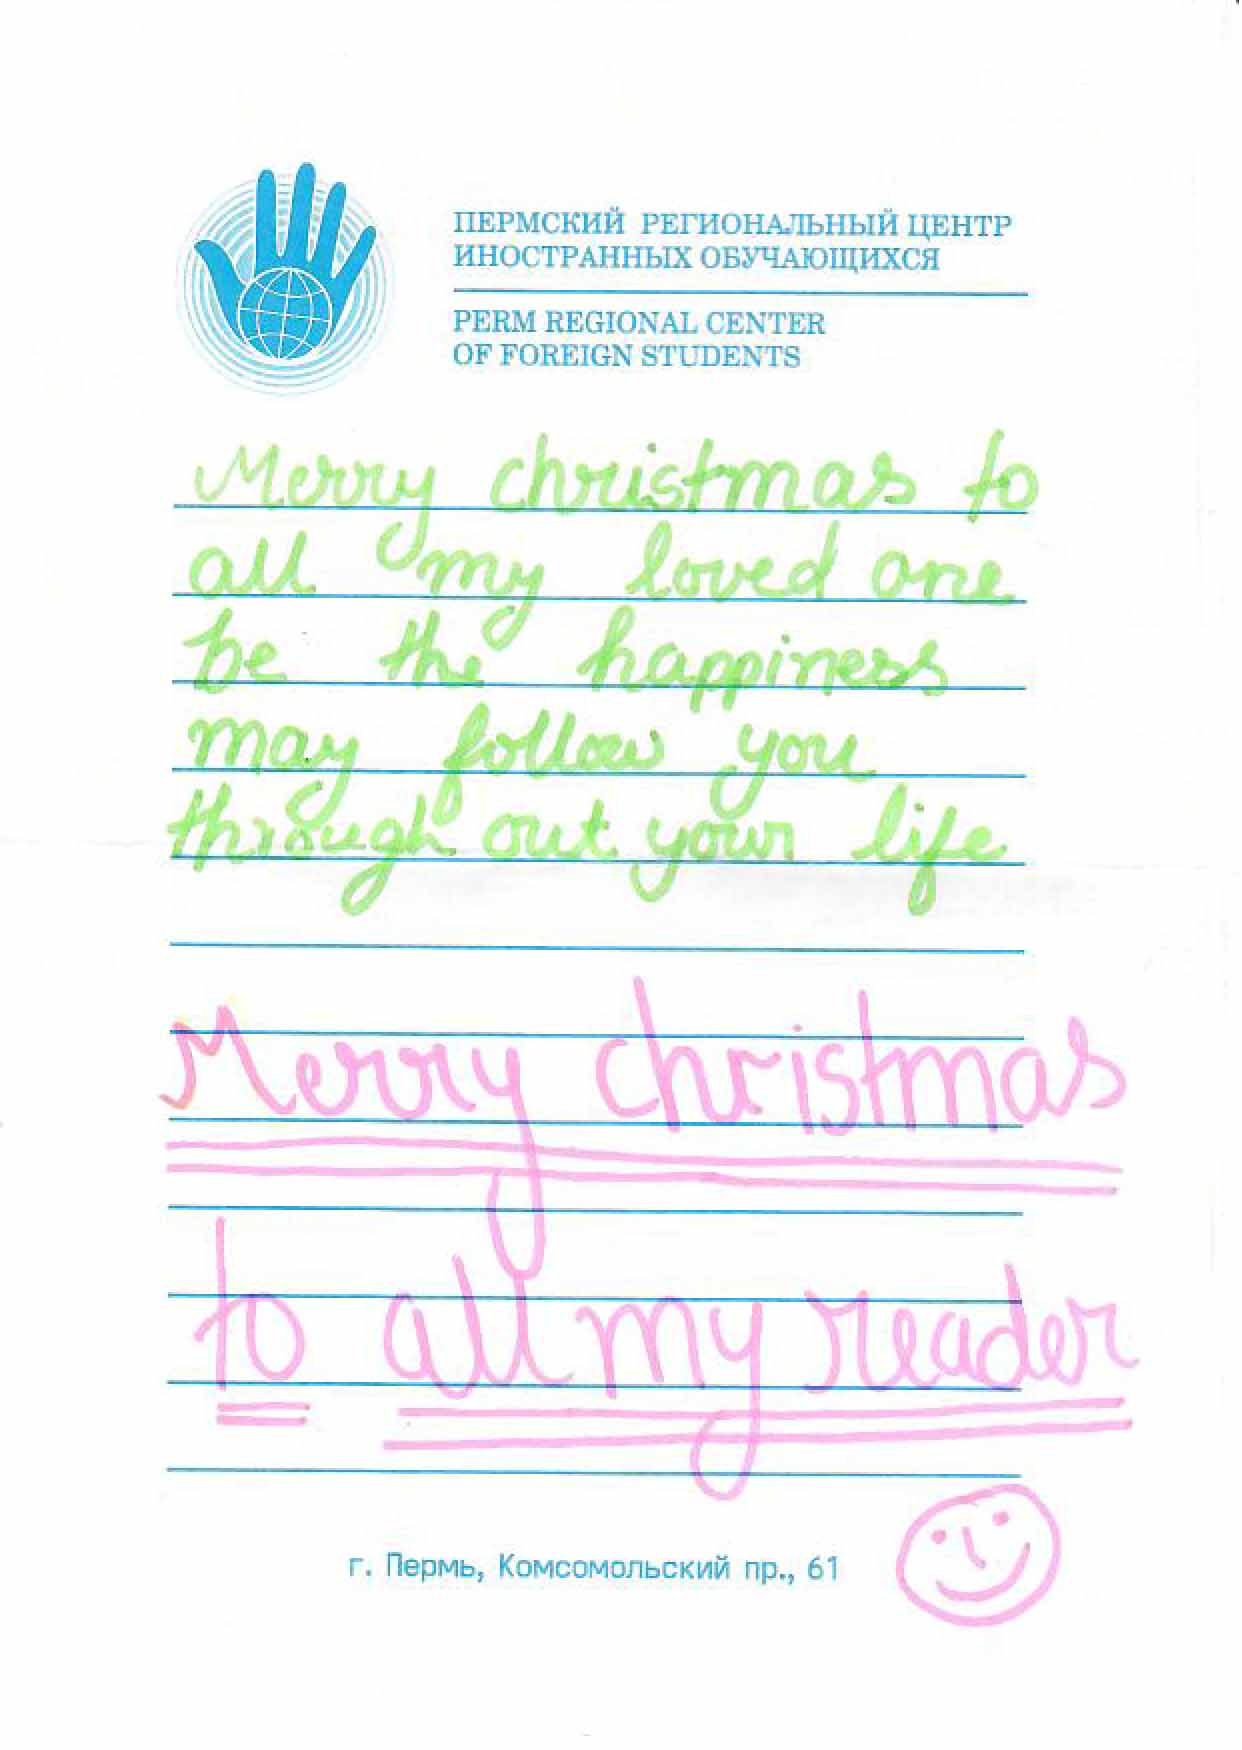 ПЕРМСКИЙ РЕГИОНАЛЬНЫЙ ЦЕНТР
ИНОСТРАННЫХ ОБУЧАЮЩИХСЯ
PERM REGIONAL CENTER
OF FOREIGN STUDENTS
Merry christmas to
all my loved one
be the happiness
may follow you
through out your life
Merry christmas
to all my reader
г. Пермь, Комсомольский пр., 61